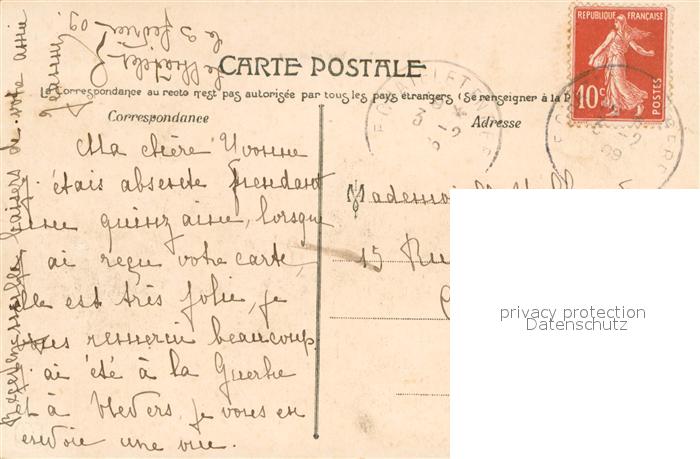 Le Châtelet
le 3 février 09.
RÉPUBLIQUE FRANÇAISE
10c
POSTES
CARTE POSTALE
La Correspondance au recto n'est pas autorisée par tous les pays étrangers (Se renseigner à la P
Correspondance
Adresse
Ma chère Yvonne
j'étais absente pendant
une quinzaine, lorsque
j'ai reçu votre carte,
elle est très jolie, je
vous remercie beaucoup.
j'ai été à la Guerche
et à Nevers, je vous en
envoie une vue.
baisers de votre amie
Jeanne
Mademoiselle
15 Ru
3 -2
09
privacy protection
Datenschutz